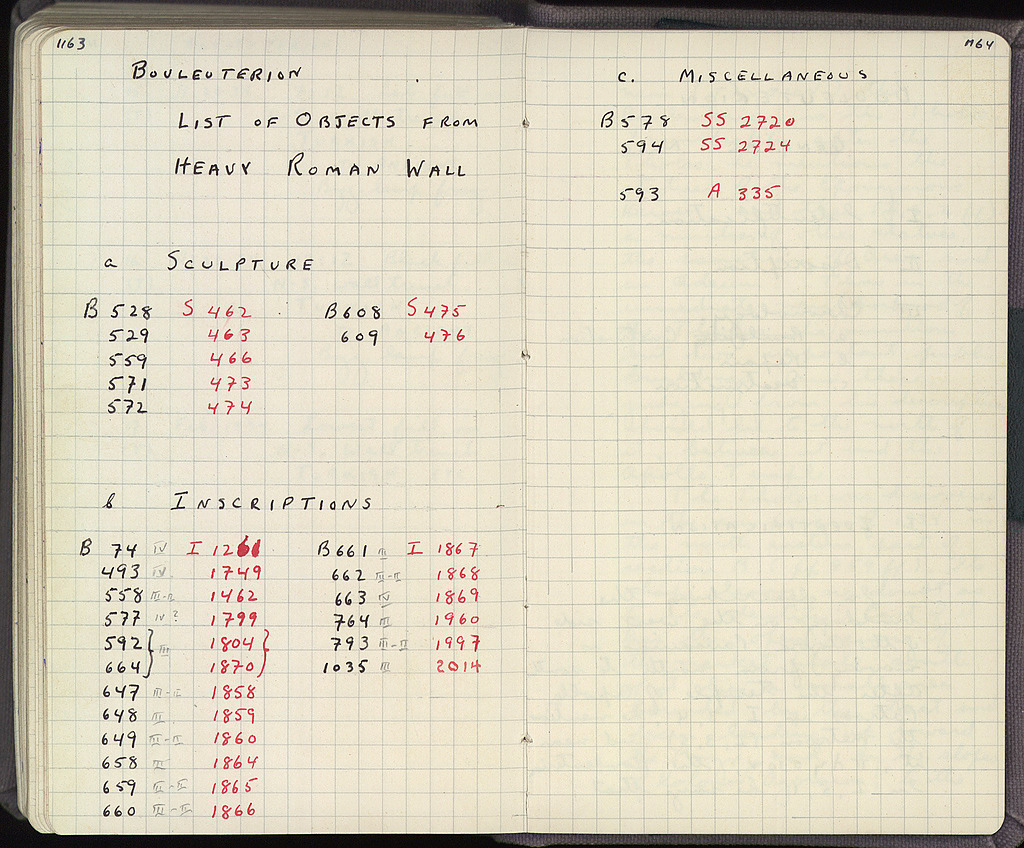 1163
BOULEUTERION
LIST OF OBJECTS FROM
HEAVY ROMAN WALL
a SCULPTURE
B 528 S 462
529 463
559 466
571 473
572 474
B 608 S 475
609 476
b INSCRIPTIONS
B 74 IV I 1261
493 IV 1749
558 III-II 1462
577 IV? 1799
592 } III 1804 }
664 } 1870 }
647 III-II 1858
648 III 1859
649 III-II 1860
658 II 1864
659 II-II 1865
660 III-II 1866
B 661 II I 1867
662 III-II 1868
663 IV 1869
764 III 1960
793 III-II 1997
1035 III 2014
1164
c. MISCELLANEOUS
B 578 SS 2720
594 SS 2724
593 A 335